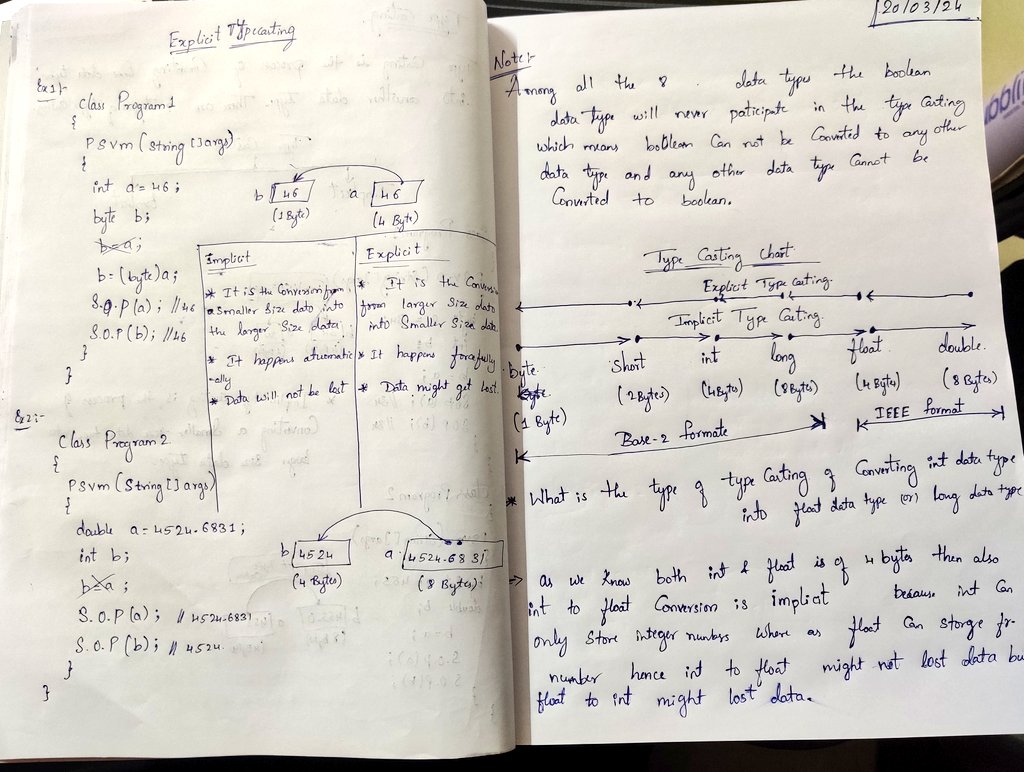 Explicit Typecasting
Ex1:-
Class Program1
{
PSvm (String []args)
{
int a = 46 ;
byte b;
b=a;
b = (byte)a;
S.o.p(a) ; //46
S.O.P (b) ; //46
}
}
b 46
(1 Byte)
a 46
(4 Byte)
Implicit
* It is the Conversion from
a smaller Size data into
the larger Size data
* It happens atuomatic
-ally
* Data will not be lost
Explicit
* It is the Conversion
from larger Size data
into Smaller Size data
* It happens forcefully
* Data might get Lost.
Ex2:-
Class Program 2
{
PSvm (String [] args)
{
double a = 4524.6831 ;
int b;
b=a ;
S.O.P(a) ; // 4524.6831
S.O.P (b) ; // 4524.
}
}
b 4524
(4 Bytes)
a 4524.6831
(8 Bytes)
20/03/24
Note:-
Among all the 8 data types the boolean
data type will never paticipate in the type Casting
which means boolean Can not be Converted to any other
data type and any other data type Cannot be
Converted to boolean.
Type Casting Chart
Explicit Type Casting.
Implicit Type Casting.
byte short int long float double.
(1 Byte) (2 Bytes) (4 Bytes) (8 Bytes) (4 Bytes) (8 Bytes)
Base-2 formate IEEE format
* What is the type of type Casting of Converting int data type
into float data type (or) long data type
→ as we know both int & float is of 4 bytes then also
int to float Conversion is implicit because int Can
only Store integer numbers where as float Can storge fr-
number hence int to float might not lost data bu
float to int might lost data.